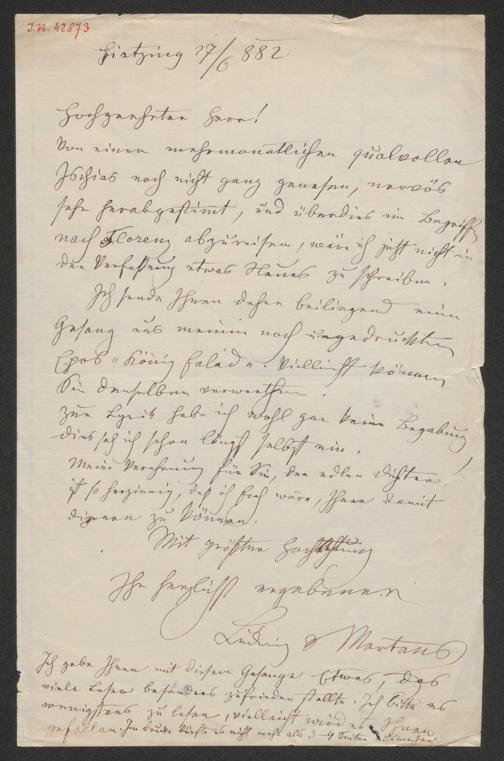 I.N. 42873
Hietzing 27/6 882
Hochgeehrter Herr!
Von einer mehrmonatlichen qualvollen
Ischias noch nicht ganz genesen, nervös
sehr herabgestimmt, und überdies im Begriffe
nach Florenz abzureisen, wäre ich jetzt nicht in
der Verfassung etwas Neues zu schreiben.
Ich sende Ihnen daher beiliegend einen
Gesang aus meinem noch ungedruckten
Epos "König". Vielleicht können
Sie denselben verwerthen.
Zur Lyrik habe ich wohl gar keine Begabung,
dies seh ich schon längst selbst ein.
Meine Verehrung für Sie, den edlen Dichter,
ist so herzinnig, daß ich froh wäre, Ihnen damit
dienen zu können.
Mit größter Hochachtung
Ihr herzlichst ergebener
Ludwig Mertens
Ich gebe Ihnen mit diesem Gesange Etwas, das
viele Leser besonders zufrieden stellte. Ich bitte es
wenigstens zu lesen, vielleicht wird es Ihnen
gefallen. Im Drucke dürfte es nicht mehr als 3-4 Seiten